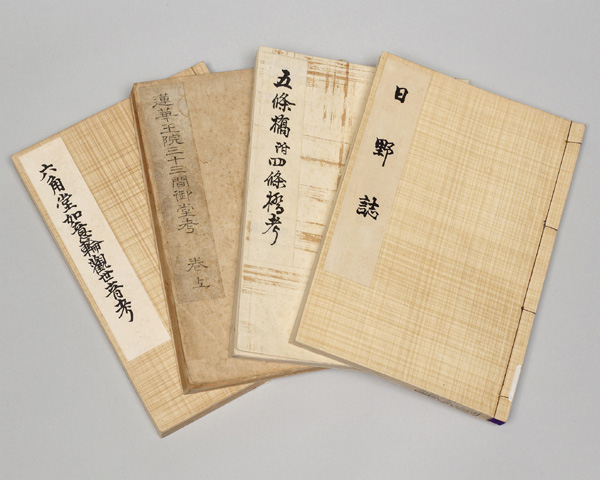 日野誌
五條橋附四條橋考
蓮華王院三十三間御堂考 巻上
六角堂如意輪觀世音考